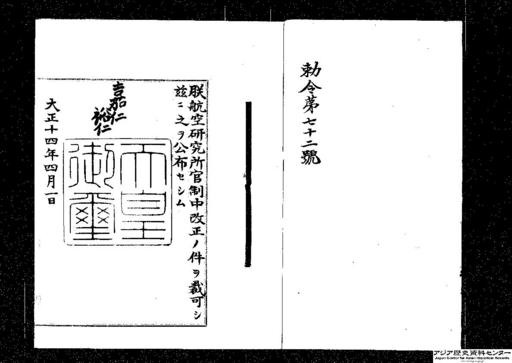 勅令第七十二號
朕航空研究所官制中改正ノ件ヲ裁可シ
玆ニ之ヲ公布セシム
嘉仁
裕仁
天皇
御璽
大正十四年四月一日
アジア歴史資料センター
Japan Center for Asian Historical Records